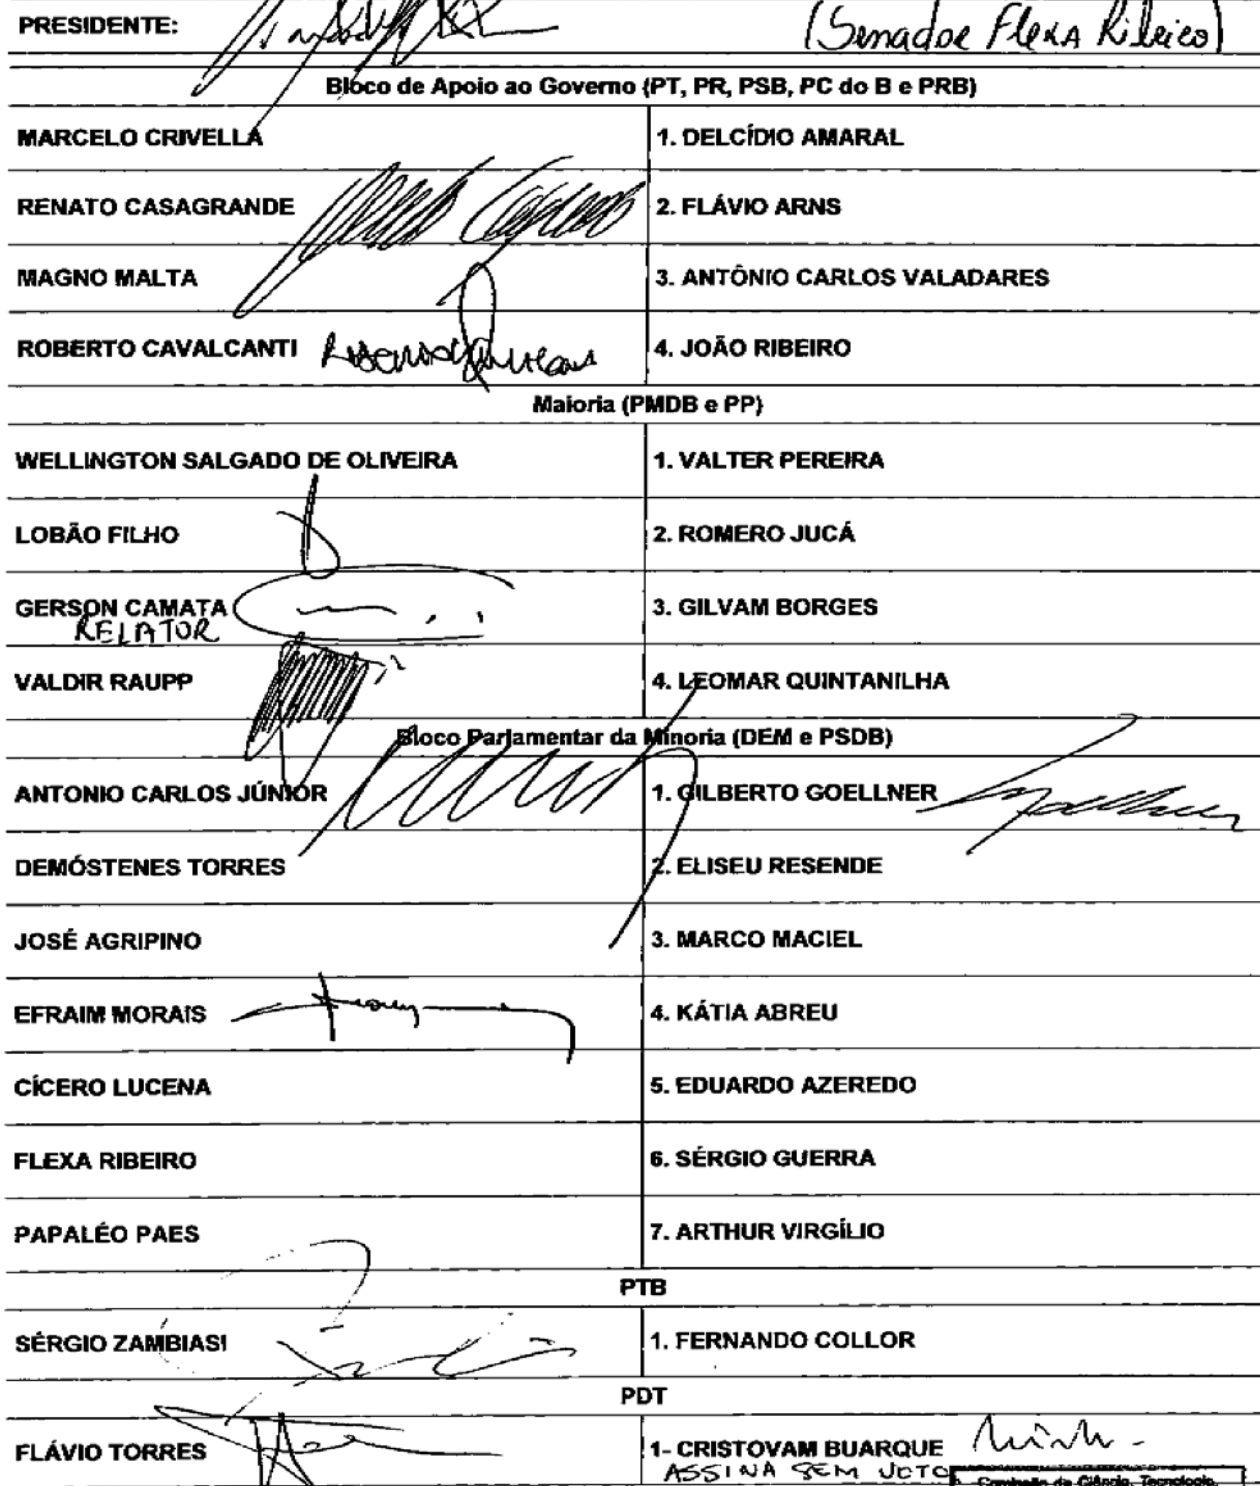 PRESIDENTE: (Senador Flexa Ribeiro)
Bloco de Apoio ao Governo (PT, PR, PSB, PC do B e PRB)
MARCELO CRIVELLA 1. DELCÍDIO AMARAL
RENATO CASAGRANDE 2. FLÁVIO ARNS
MAGNO MALTA 3. ANTÔNIO CARLOS VALADARES
ROBERTO CAVALCANTI 4. JOÃO RIBEIRO
Maioria (PMDB e PP)
WELLINGTON SALGADO DE OLIVEIRA 1. VALTER PEREIRA
LOBÃO FILHO 2. ROMERO JUCÁ
GERSON CAMATA 3. GILVAM BORGES
RELATOR
VALDIR RAUPP 4. LEOMAR QUINTANILHA
Bloco Parlamentar da Minoria (DEM e PSDB)
ANTONIO CARLOS JÚNIOR 1. GILBERTO GOELLNER
DEMÓSTENES TORRES 2. ELISEU RESENDE
JOSÉ AGRIPINO 3. MARCO MACIEL
EFRAIM MORAIS 4. KÁTIA ABREU
CÍCERO LUCENA 5. EDUARDO AZEREDO
FLEXA RIBEIRO 6. SÉRGIO GUERRA
PAPALÉO PAES 7. ARTHUR VIRGÍLIO
PTB
SÉRGIO ZAMBIASI 1. FERNANDO COLLOR
PDT
FLÁVIO TORRES 1- CRISTOVAM BUARQUE
ASSINA SEM VOTO
Comissão de Ciência, Tecnologia,